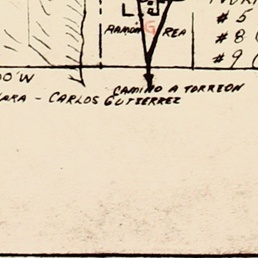 L
RAMÓN G REA
# 5
# 8
# 9
00'W
CAMINO A TORREON
ARA - CARLOS GUTIERREZ